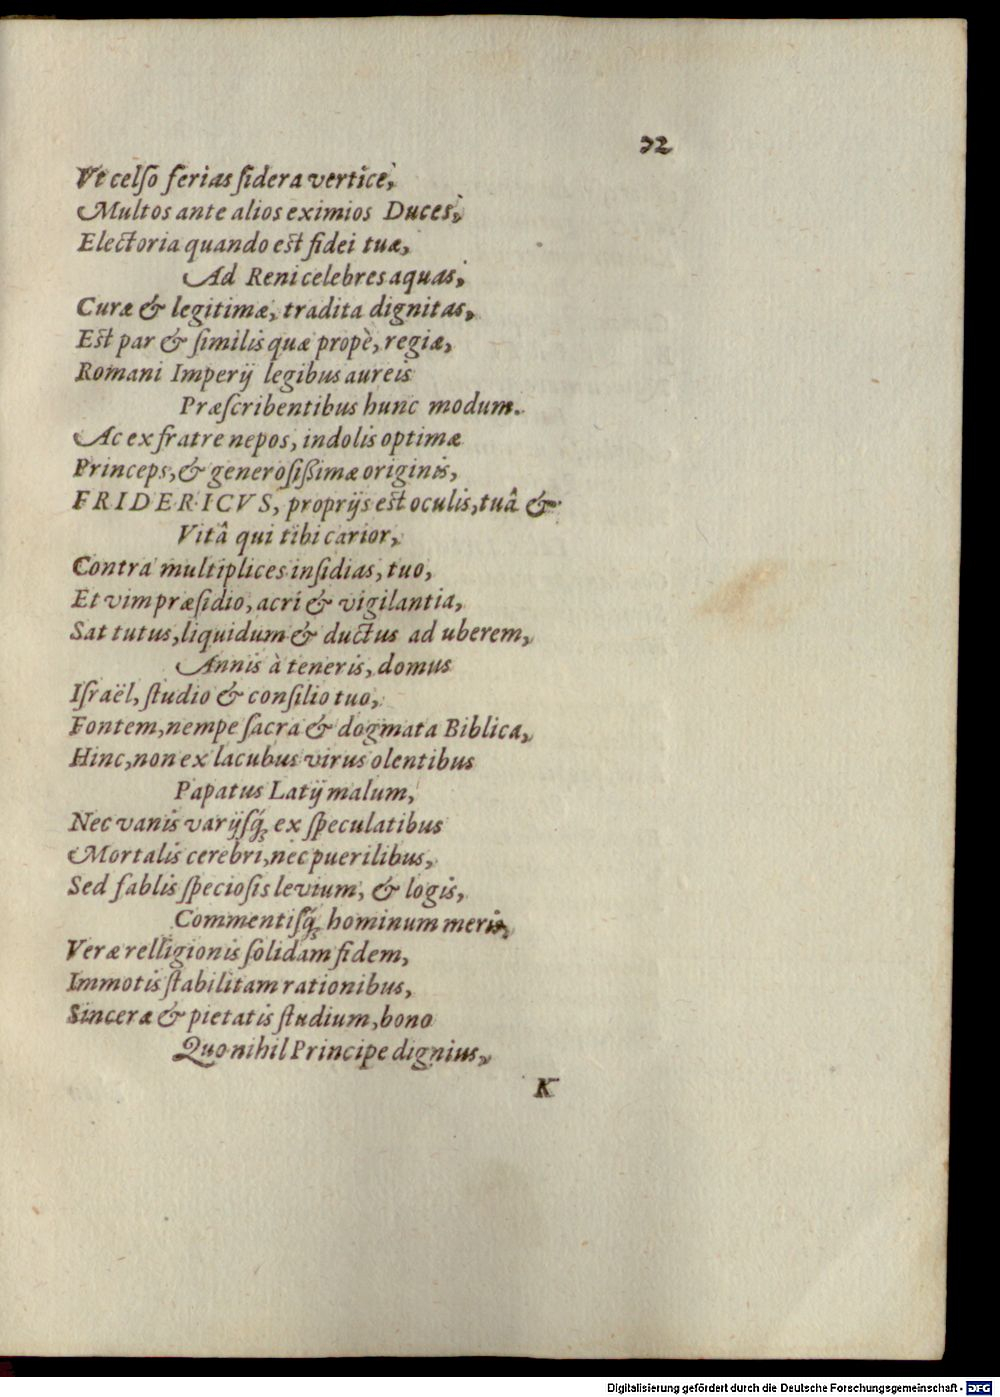 32
Vt celſo ferias ſidera vertice,
Multos ante alios eximios Duces,
Electoria quando est fidei tuæ,
Ad Reni celebres aquas,
Curæ & legitimæ, tradita dignitas,
Est par & ſimilis quæ propè, regiæ,
Romani Imperij legibus aureis
Præſcribentibus hunc modum.
Ac ex fratre nepos, indolis optimæ
Princeps, & generoſißimæ originis,
FRIDERICVS, proprijs est oculis, tuâ &
Vitâ qui tibi carior,
Contra multiplices inſidias, tuo,
Et vim præſidio, acri & vigilantia,
Sat tutus, liquidum & ductus ad uberem,
Annis à teneris, domus
Iſraël, ſtudio & conſilio tuo,
Fontem, nempe ſacra & dogmata Biblica,
Hinc, non ex lacubus virus olentibus
Papatus Latij malum,
Nec vanis varijſq́; ex ſpeculatibus
Mortalis cerebri, nec puerilibus,
Sed fablis ſpecioſis levium, & logis,
Commentiſq́; hominum meris,
Veræ relligionis ſolidam fidem,
Immotis ſtabilitam rationibus,
Sinceræ & pietatis ſtudium, bono
Quo nihil Principe dignius,
K
Digitalisierung gefördert durch die Deutsche Forschungsgemeinschaft - DFG